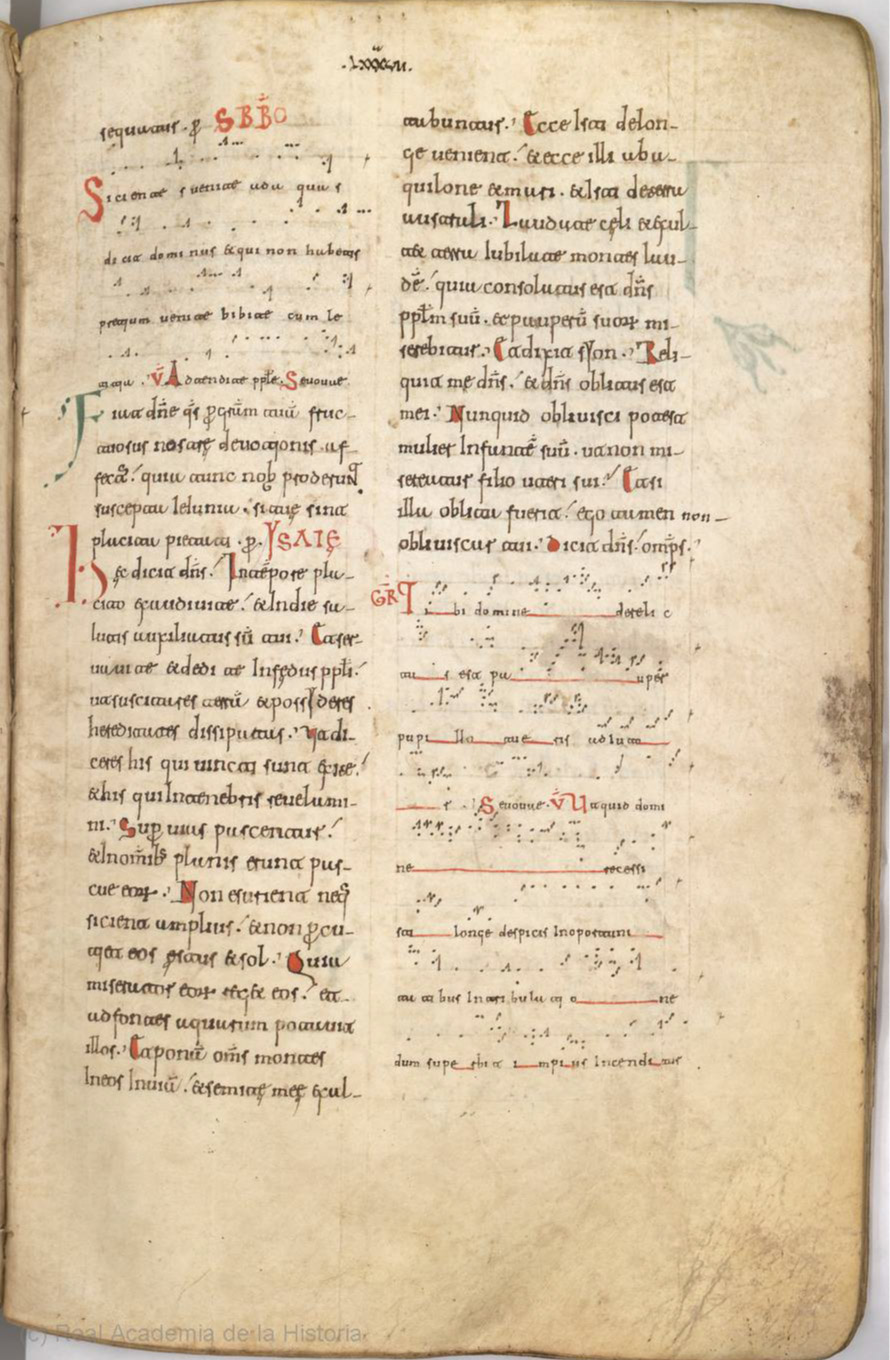 .lxxxvii.
sequatur . ꝑ SBBO
Sicientes venite ad aquas
dicit dominus & qui non habetis
precium venite bibite cum le
ticia . V Adtendite pple. Seuouae
Fiat dñe q̄s ꝑ gr̄am tuā fruc-
tuosus nostrę deuotionis af-
fect᷒. quia tunc nob proderunt
suscepta Ieiunia . si tuę sint
placita pietati . ꝑ. YSAIĘ
Hęc dicit dñs. In tēpore pla-
cito exaudiui te. & In die sa-
lutis auxiliatus sū tui. Et ser-
uaui te & dedi te In fędus ppli.
ut suscitares terrā & possideres
hereditates dissipatas. Vt di-
ceres his qui uincti sunt exite.
& his qui In tenebris reuelami-
ni. Sup uias pascentur.
& In omīb planis erunt pas-
cue eorꝝ. Non esurient neq
sicient amplius. & non ꝑcu-
tiet eos ęstus & sol. Quia
miserator eorꝝ reget eos. et
ad fontes aquarum potauit
illos. Et ponā oms montes
meos In uiā. & semitę meę exal-
tabuntur. Ecce Isti de lon-
ge uenient. & ecce illi ab a-
quilone & mari. & Isti de terra
australi. Laudate cęli & exul-
tet terra Iubilate montes lau-
dē. quia consolatus est dñs
pplm suū. & pauperū suorꝝ mi-
serebitur. Et dixit syon. Reli-
quit me dñs. & dñs oblitus est
mei. Nunquid obliuisci potest
mulier Infantē suū. ut non mi-
sereatur filio uteri sui. Et si
illa oblita fuerit. ego tamen non
obliuiscar tui. Dicit dñs omps.
GR Tibi domine dereli c
tus est pau per
pupillo tu eris adiuto
r . Seuouae. V Ut quid domi
ne recessi
sti longe despicis In oportuni
tatibus In tribulatio ne
dum superbit impius Incenditur
(c) Real Academia de la Historia